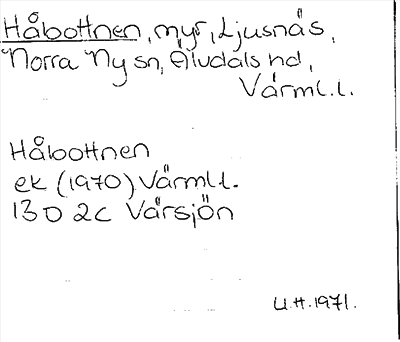 Håbottnen, myr, Ljusnäs,
Norra Ny sn, Älvdals hd,
Värml.l.
Håbottnen
ek (1970) Värml.l.
13D 2c Vårsjön
U.H. 1971.